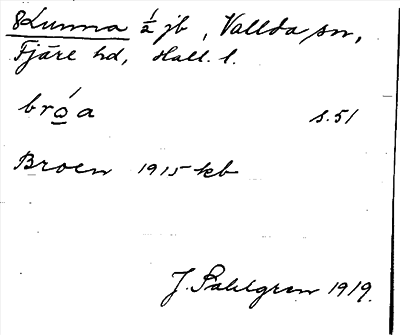 8 Lunna ½ jb, Vallda sn,
Fjäre hd, Hall. l.
bró̲a s. 51
Broen 1915 kb
J. Sahlgren 1919.